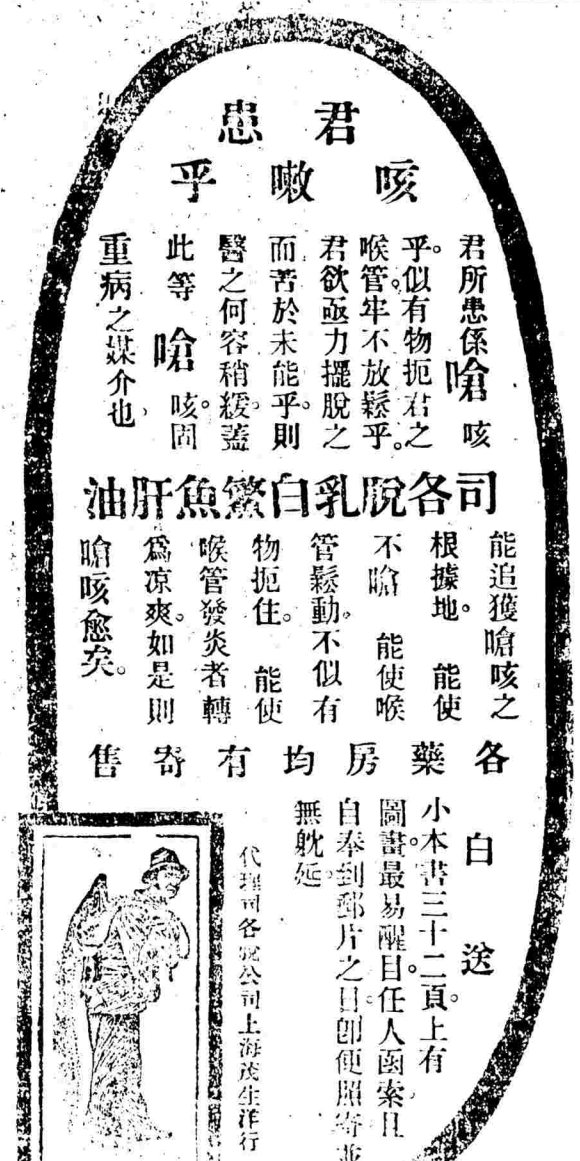 君患
咳嗽乎
君所患係嗆咳
乎。似有物扼君之
喉管。牢不放鬆乎。
君欲亟力擺脫之
而苦於未能乎。則
醫之何容稍緩。蓋
此等嗆咳。固
重病之媒介也、
司各脫乳白鰵魚肝油
能追獲嗆咳之
根據地。能使
不嗆 能使喉
管鬆動。不似有
物扼住。能使
喉管發炎者轉
爲凉爽。如是則
嗆咳愈矣。
各藥房均有寄售
白送
小本書三十二頁。上有
圖畫。最易醒目。任人函索。且
自奉到郵片之日。卽便照寄。並
無躭延。
代理司各脫公司上海茂生洋行